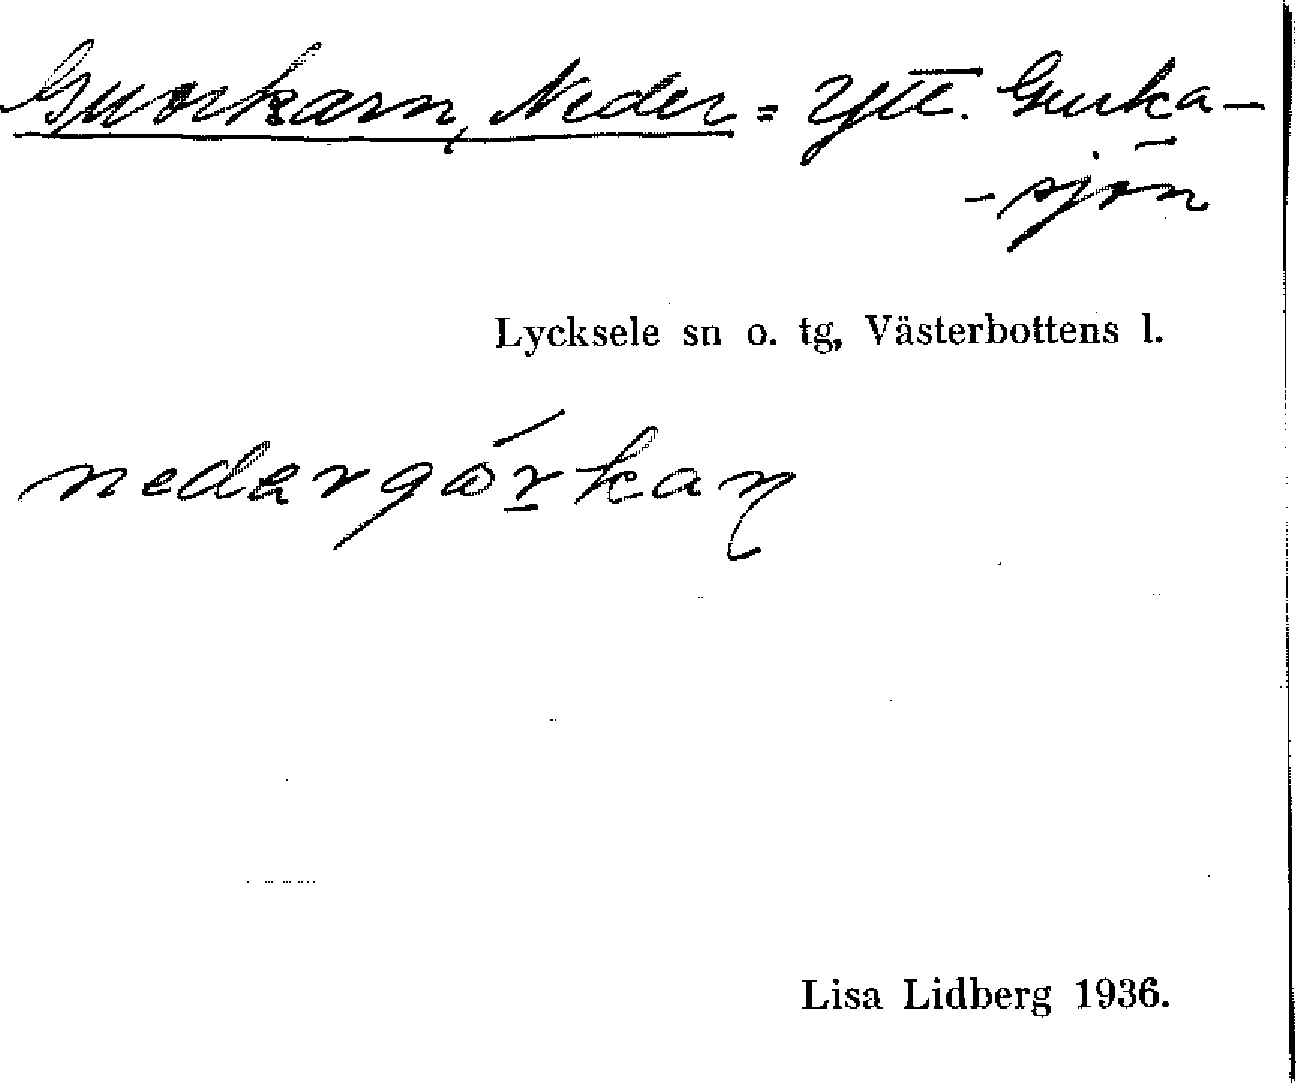 Guorkarn, Neder = Ytt. Gurka-
-sjön
Lycksele sn o. tg, Västerbottens l.
nedərgɷ́r̲kaɳ
Lisa Lidberg 1936.